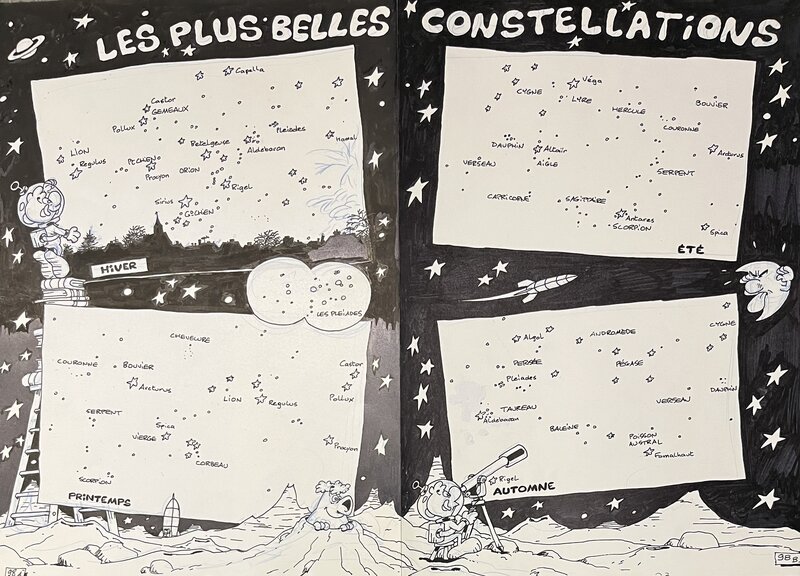 LES PLUS BELLES CONSTELLATIONS
Capella
Castor
GEMEAUX
Pollux
Pleiades
Hamal
LION
Betelgeuse
Aldebaran
Regulus
Pt CHIEN
Procyon
ORION
Rigel
Sirius
Gd CHIEN
HIVER
LES PLEIADES
CHEVELURE
COURONNE
BOUVIER
Castor
Arcturus
LION
Regulus
Pollux
SERPENT
Spica
VIERGE
Procyon
CORBEAU
SCORPION
PRINTEMPS
Véga
CYGNE
LYRE
HERCULE
BOUVIER
COURONNE
DAUPHIN
Altaïr
Arcturus
VERSEAU
AIGLE
SERPENT
CAPRICORNE
SAGITTAIRE
Antares
SCORPION
Spica
ÉTÉ
Algol
ANDROMEDE
CYGNE
PERSÉE
PEGASE
Pleiades
DAUPHIN
TAUREAU
VERSEAU
Aldebaran
BALEINE
POISSON
AUSTRAL
Fomalhaut
Rigel
AUTOMNE
98 B